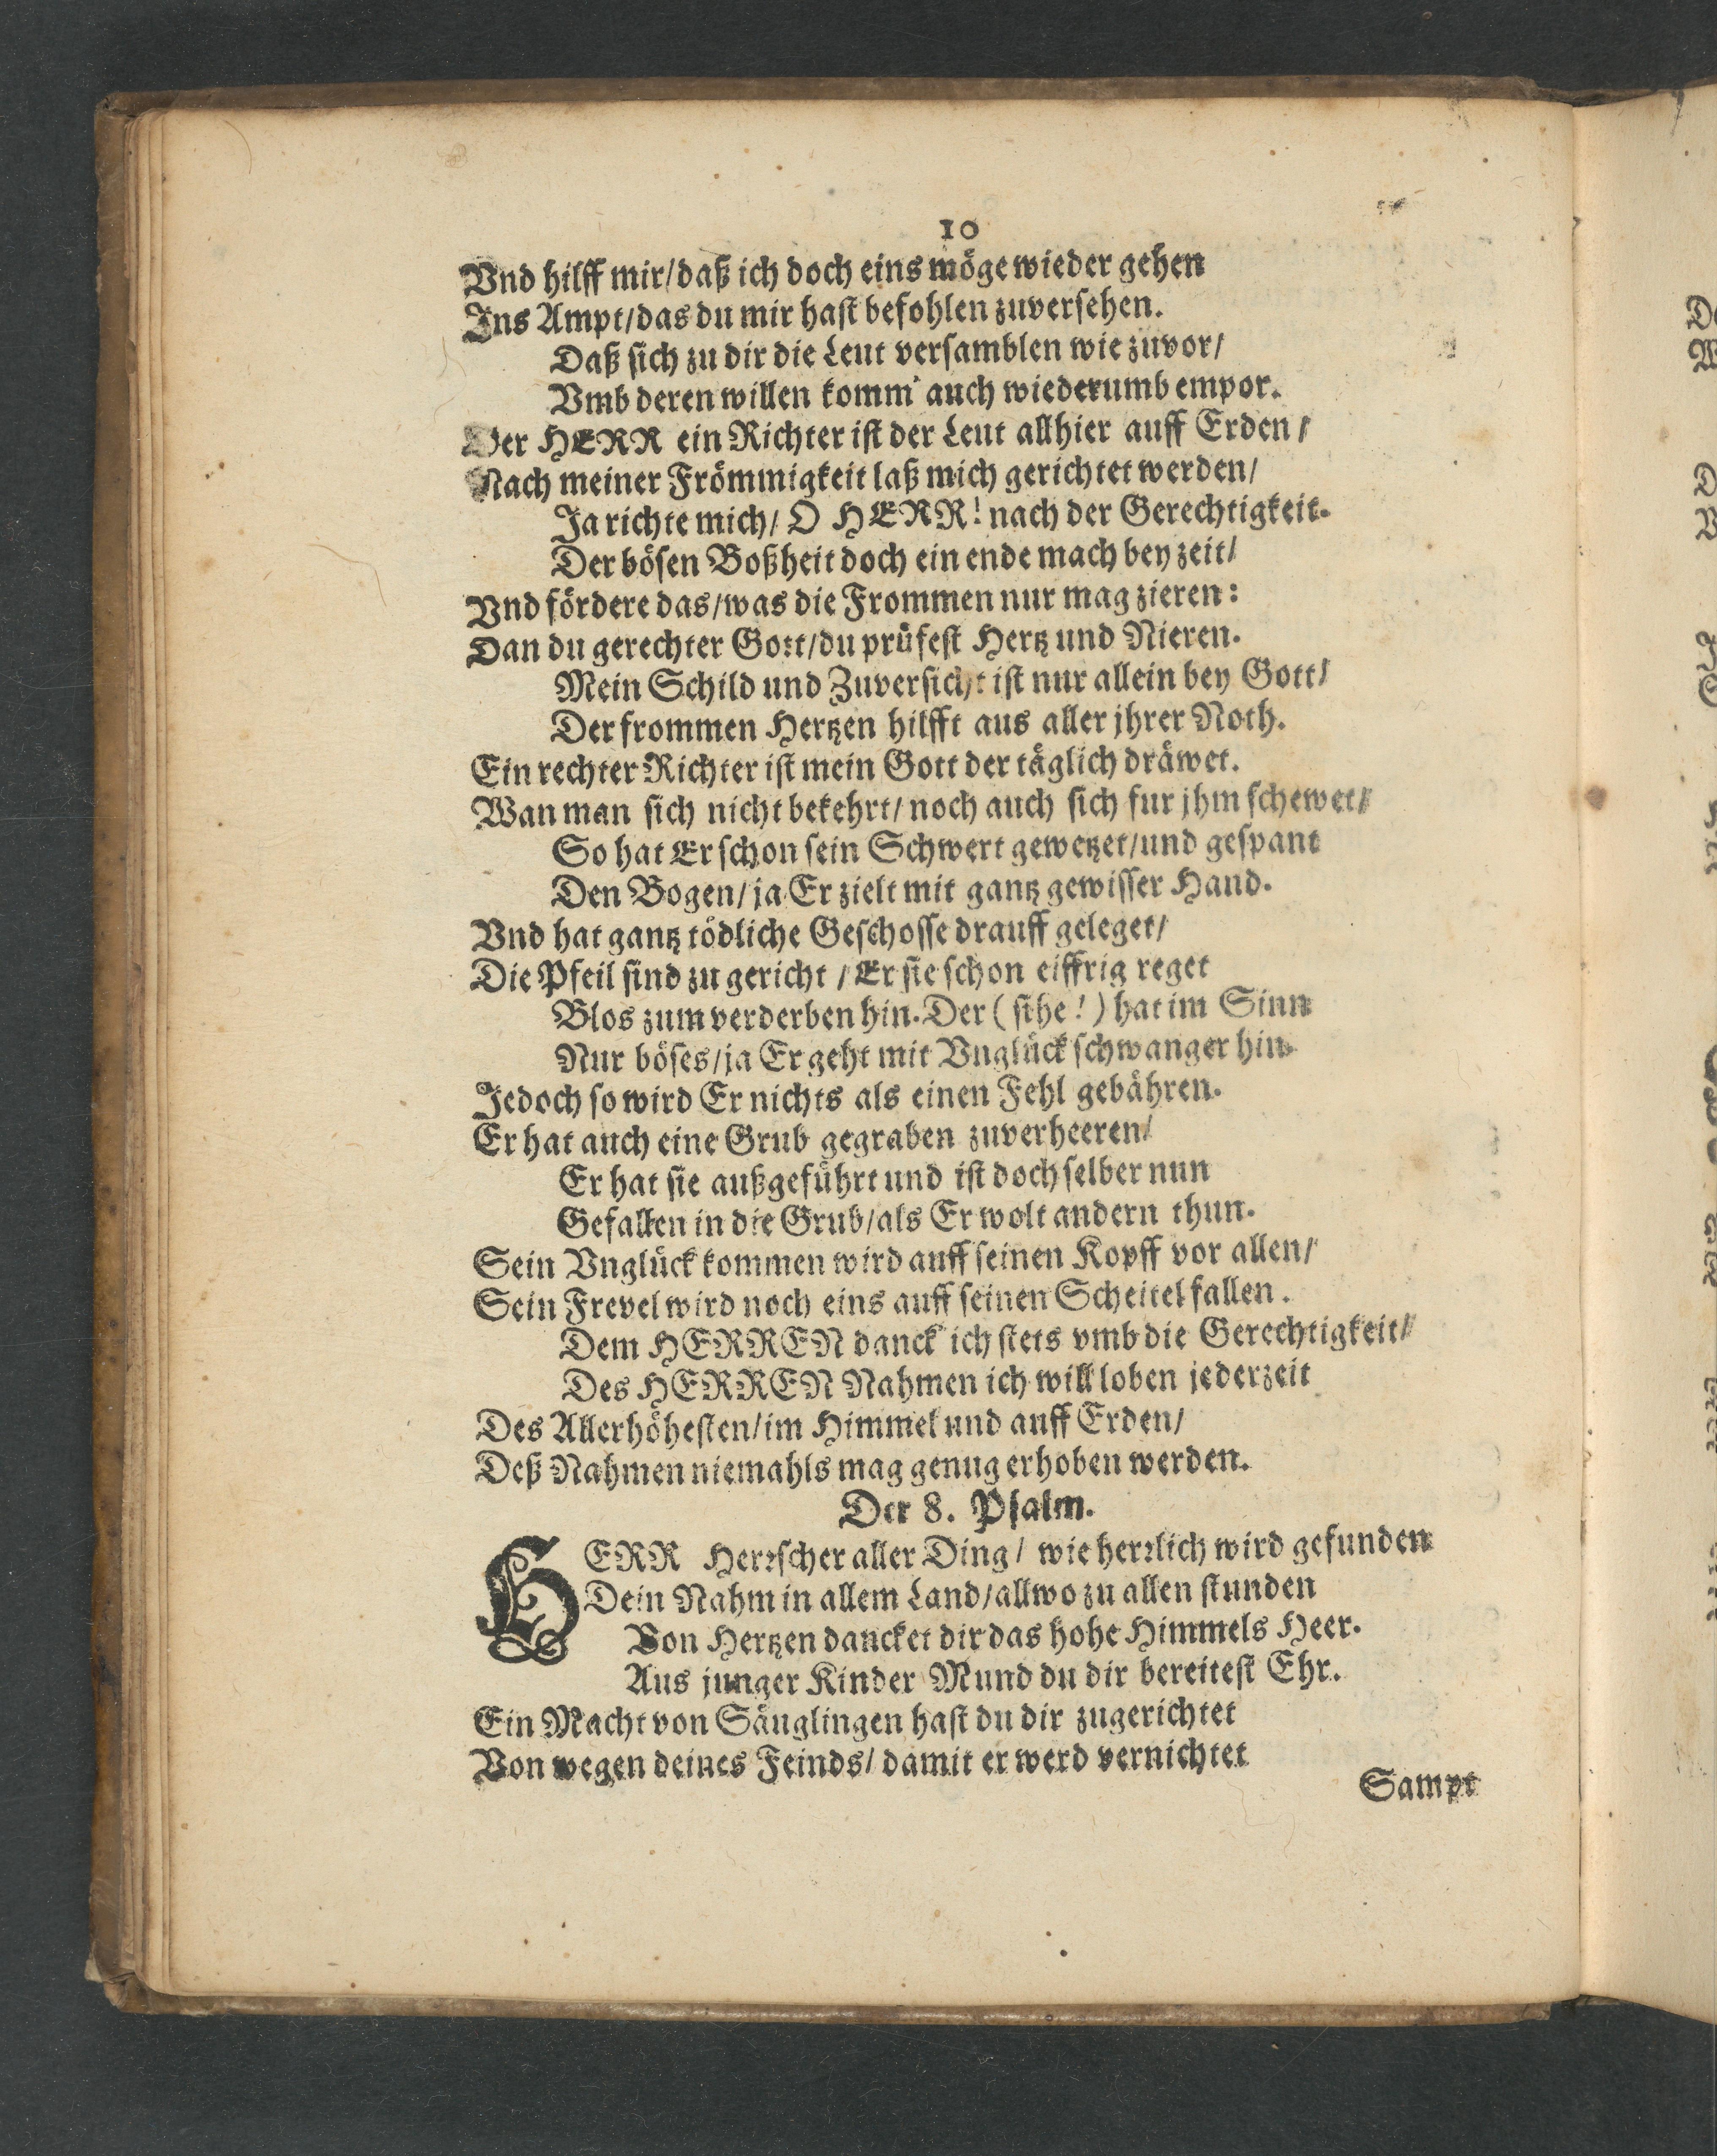 10
Vnd hilff mir/daß ich doch eins möge wieder gehen
Ins Ampt/das du mir hast befohlen zuversehen.
Daß sich zu dir die Leut versamblen wie zuvor/
Vmb deren willen komm' auch wiederumb empor.
Der HERR ein Richter ist der Leut allhier auff Erden/
Nach meiner Frömmigkeit laß mich gerichtet werden/
Ja richte mich/ O HERR! nach der Gerechtigkeit.
Der bösen Boßheit doch ein ende mach bey zeit/
Vnd fördere das/was die Frommen nur mag zieren:
Dan du gerechter Gott/du prüfest Hertz und Nieren.
Mein Schild und Zuversicht ist nur allein bey Gott/
Der frommen Hertzen hilfft aus aller jhrer Noth.
Ein rechter Richter ist mein Gott der täglich dräwet.
Wan man sich nicht bekehrt/ noch auch sich fur jhm schewet/
So hat Er schon sein Schwert gewetzet/und gespant
Den Bogen/ja Er zielt mit gantz gewisser Hand.
Vnd hat gantz tödliche Geschosse drauff geleget/
Die Pfeil sind zu gericht / Er sie schon eiffrig reget
Blos zum verderben hin. Der (sihe!) hat im Sinn
Nur böses/ja Er geht mit Vnglück schwanger hin.
Jedoch so wird Er nichts als einen Fehl gebähren.
Er hat auch eine Grub gegraben zuverheeren/
Er hat sie außgeführt und ist doch selber nun
Gefallen in die Grub/als Er wolt andern thun.
Sein Vnglück kommen wird auff seinen Kopff vor allen/
Sein Frevel wird noch eins auff seinen Scheitel fallen.
Dem HERREN danck' ich stets vmb die Gerechtigkeit/
Des HERREN Nahmen ich will loben jederzeit
Des Allerhöhesten/im Himmel und auff Erden/
Deß Nahmen niemahls mag genug erhoben werden.
Der 8. Psalm.
HERR Herꝛscher aller Ding/ wie herꝛlich wird gefunden
Dein Nahm in allem Land/allwo zu allen stunden
Von Hertzen dancket dir das hohe Himmels Heer.
Aus junger Kinder Mund du dir bereitest Ehr.
Ein Macht von Säuglingen hast du dir zugerichtet
Von wegen deines Feinds/ damit er werd vernichtet
Sampt